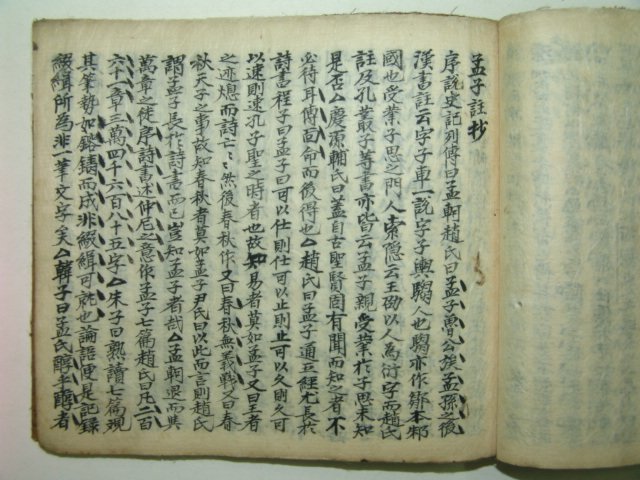 孟子註抄
序說史記列傳曰孟軻趙氏曰孟子魯公族孟孫之後
漢書註云字子車一說字子輿騶人也騶亦作鄒本邾
國也受業子思之門人索隱云王劭以人爲衍字而趙氏
註及孔叢子等書亦皆云孟子親受業於子思未知
是否△慶源輔氏曰蓋自古聖賢固有聞而知之者不
必待耳傳面命而後得也△趙氏曰孟子通五經尤長於
詩書程子曰孟子曰可以仕則仕可以止則止可以久則久可
以速則速孔子聖之時者也故知易者莫如孟子又曰王者
之迹熄而詩亡〻然後春秋作又曰春秋無義戰又曰春
秋天子之事故知春秋者莫如孟子尹氏曰以此而言則趙氏
謂孟子長於詩書而已豈知孟子者哉△孟軻退而與
萬章之徒序詩書述仲尼之意作孟子七篇趙氏曰凡二百
六十一章三萬四千六百八十五字△朱子曰熟讀七篇觀
其筆勢如鎔鑄而成非綴緝可就也論語便是記錄
綴緝所為非一筆文字矣△韓子曰孟氏醇乎醇者